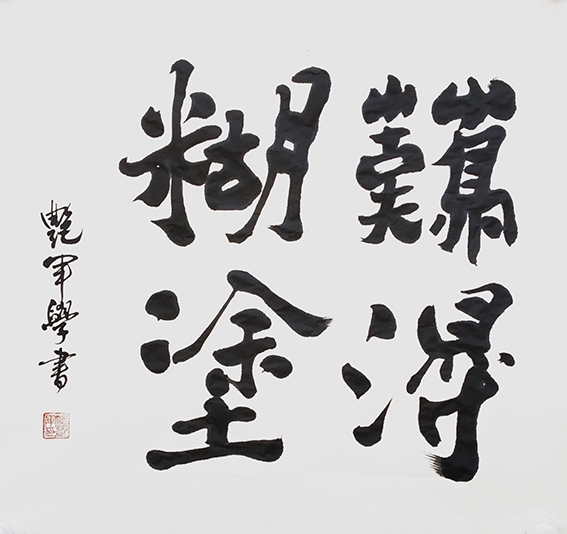 難得
糊塗
艷軍學書